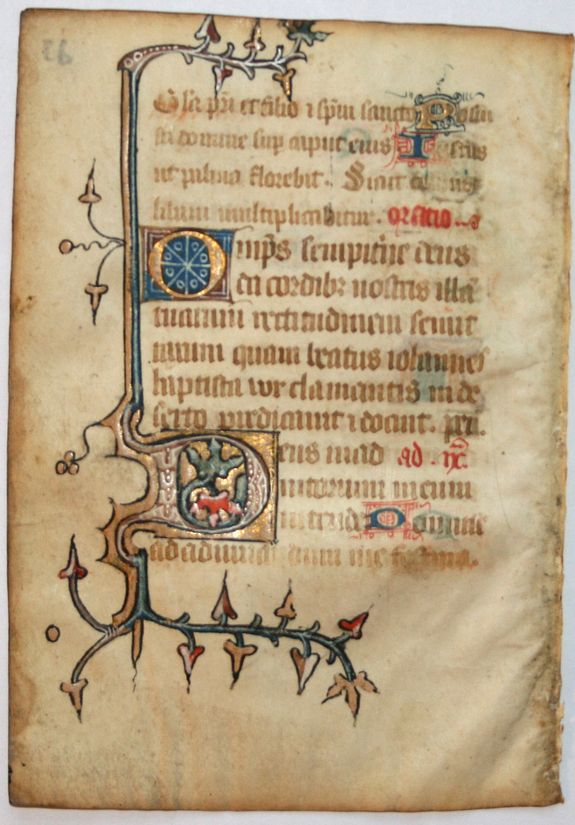 Gl'a p̄ri et filio ⁊ sp̄ui sancto Posui
sti domine sup caput eius Iustus
ut palma florebit. Sicut
lilium multiplicabitur. oracio
Omp̄s sempit'ne deus
da cordibz nostris illā
tuarum rectitudinem semit
tarum quam beatus iohannes
baptista vox clamantis in de
serto predicauit ⁊ docuit. per.
Deus in ad ad
iutorium meum
intende Domine
ad adiuuandum me festina.